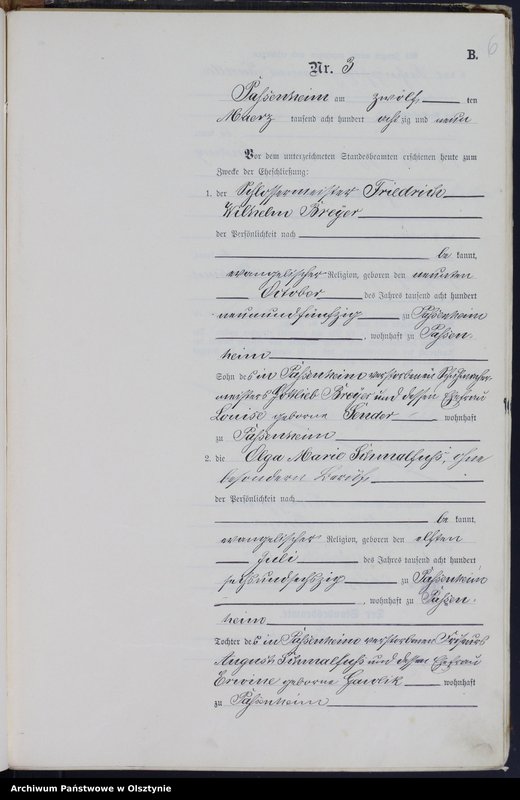 6
B.
Nr. 3
Passenheim am zwölf ten
Maerz tausend acht hundert achtzig und neun
Vor dem unterzeichneten Standesbeamten erschienen heute zum
Zwecke der Eheschließung:
1. der Schlossermeister Friedrich
Wilhelm Breyer
der Persönlichkeit nach
be kannt,
evangelischer Religion, geboren den neunten
October des Jahres tausend acht hundert
neunundfünfzig zu Passenheim
, wohnhaft zu Passen
heim
Sohn des in Passenheim verstorbenen Schuhmacher
meisters Gottlieb Breyer und dessen Ehefrau
Louise geborne wohnhaft
zu Passenheim
2. die Olga Marie Schmalfuss, ohne
besondern Beruf
der Persönlichkeit nach
be kannt,
evangelischer Religion, geboren den elften
Juli des Jahres tausend acht hundert
sechsundsechszig zu Passenheim
, wohnhaft zu Passen-
heim
Tochter des in Passenheim verstorbenen Friseurs
August Schmalfuss und dessen Ehefrau
geborne Gawlik wohnhaft
zu Passenheim
Archiwum Państwowe w Olsztynie